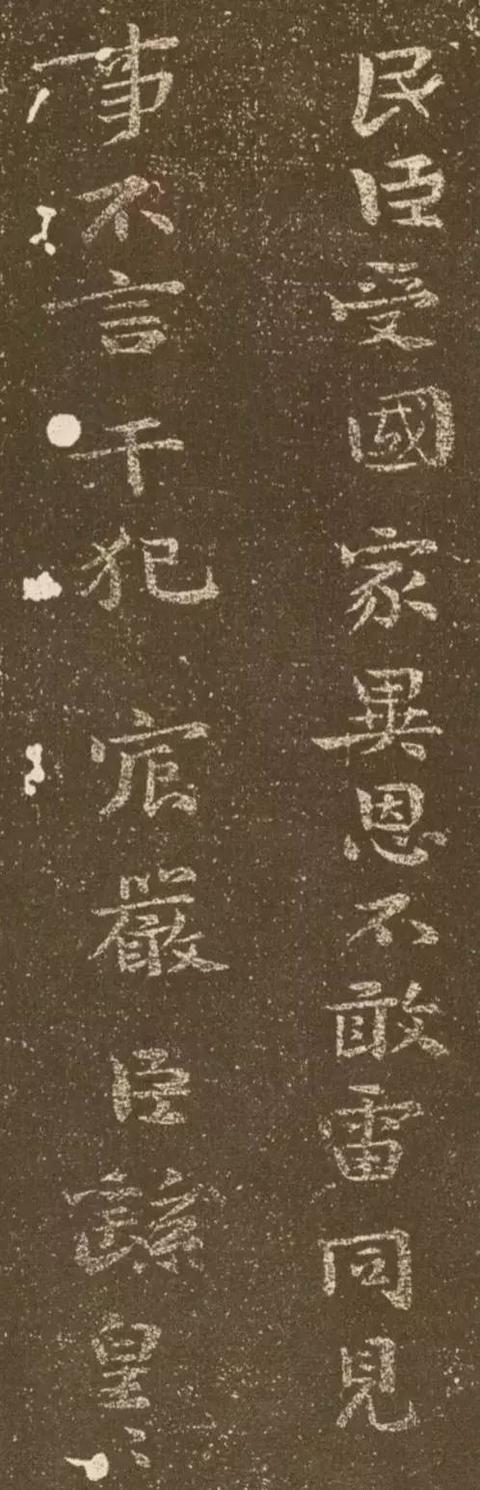 民臣受國家異恩不敢雷同見
事不言干犯宸嚴臣繇皇〻